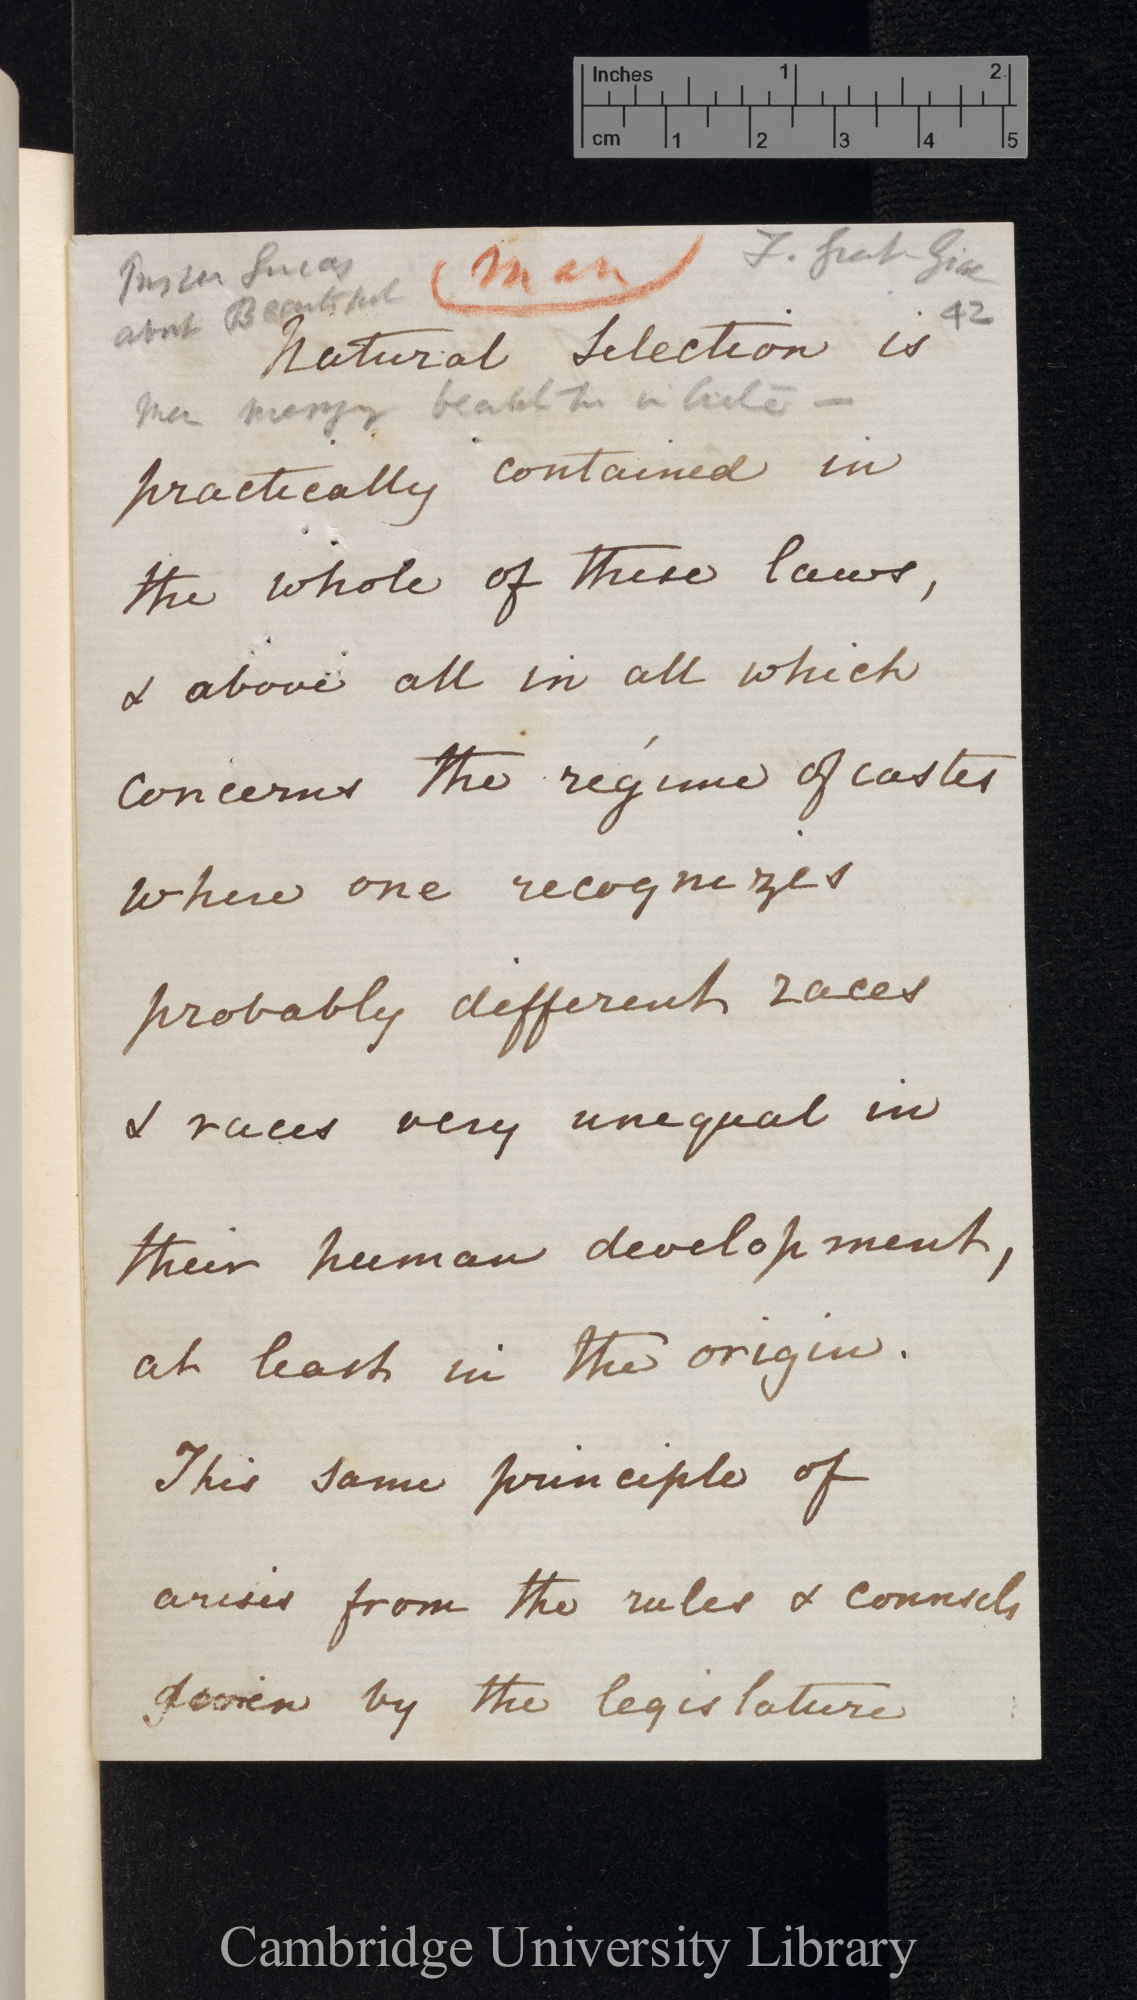 Inches 1 2
cm 1 2 3 4 5
Man
42
about Beautiful
Natural Selection is
men
practically contained in
the whole of these laws,
& above all in all which
concerns the régime of castes
where one recognizes
probably different races
& races very unequal in
their human development,
at least in the origin.
This same principle of
arises from the rules & counsels
given by the legislature
Cambridge University Library